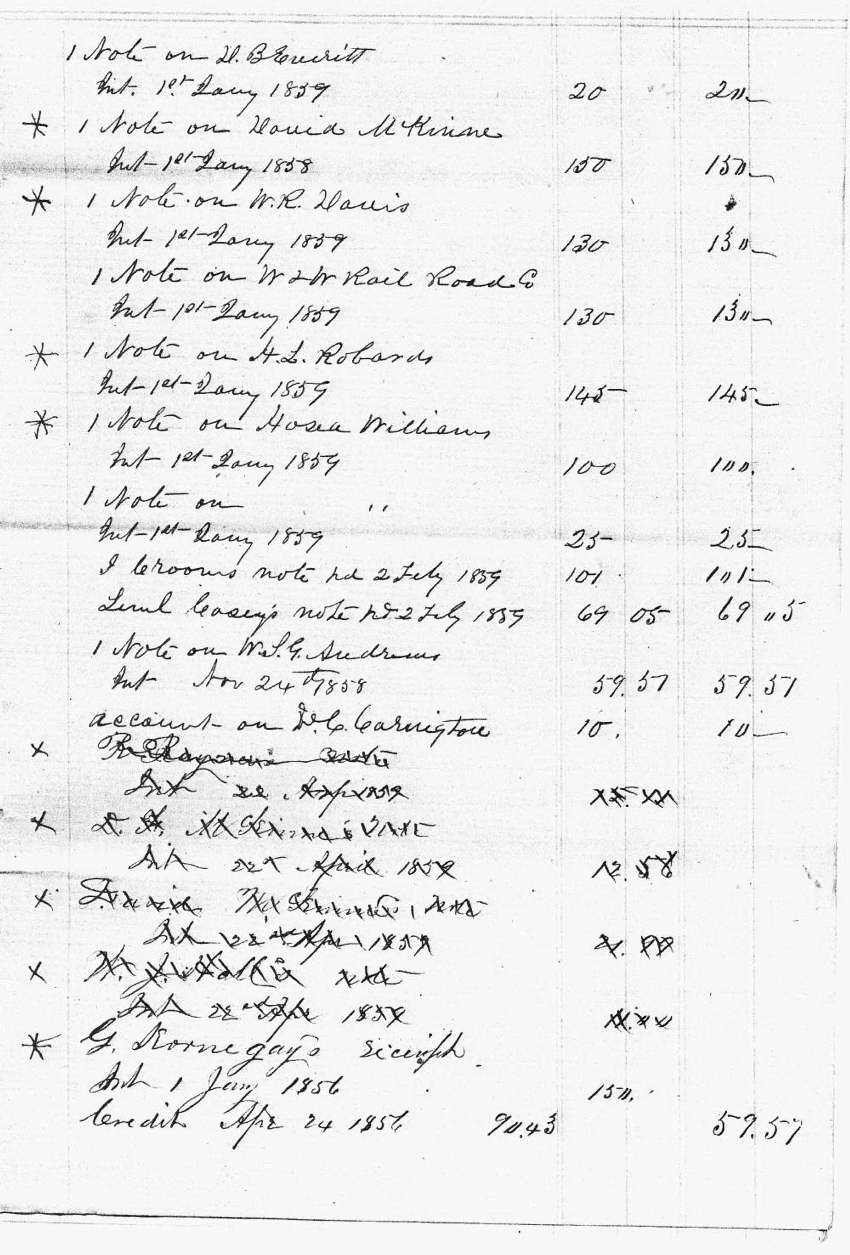 1 Note on D. B Everitt
Int. 1st Jany 1859 20 20
* 1 Note on David McKinne
Int 1st Jany 1858 150 150
* 1 Note on W. R. Davis
Int 1st Jany 1859 130 130
1 Note on W & W Rail Road Co
Int 1st Jany 1859 130 130
* 1 Note on H. L. Robards
Int 1st Jany 1859 145 145
* 1 Note on Hosea Williams
Int 1st Jany 1859 100 100.
1 Note on "
Int 1st Jany 1859 25 25
I Crooms note pd 2 Feby 1859 101 101
Leml Casey's note pd 2 Feby 1859 69 05 69 05
1 Note on W. S. G. Andrews
Int Nov 24th 1858 59.57 59.57
account on D. C. Carrington 10. 10
x
Int 22 Apr 1859
x
Int 22d April 1859 12.58
x note
Int 22d Apr 1859
x note
Int 22d Apr 1859
* G. Kornegay's receipt
Int 1 Jany 1856 150.
Credit Apr 24 1856 90.43 59.57